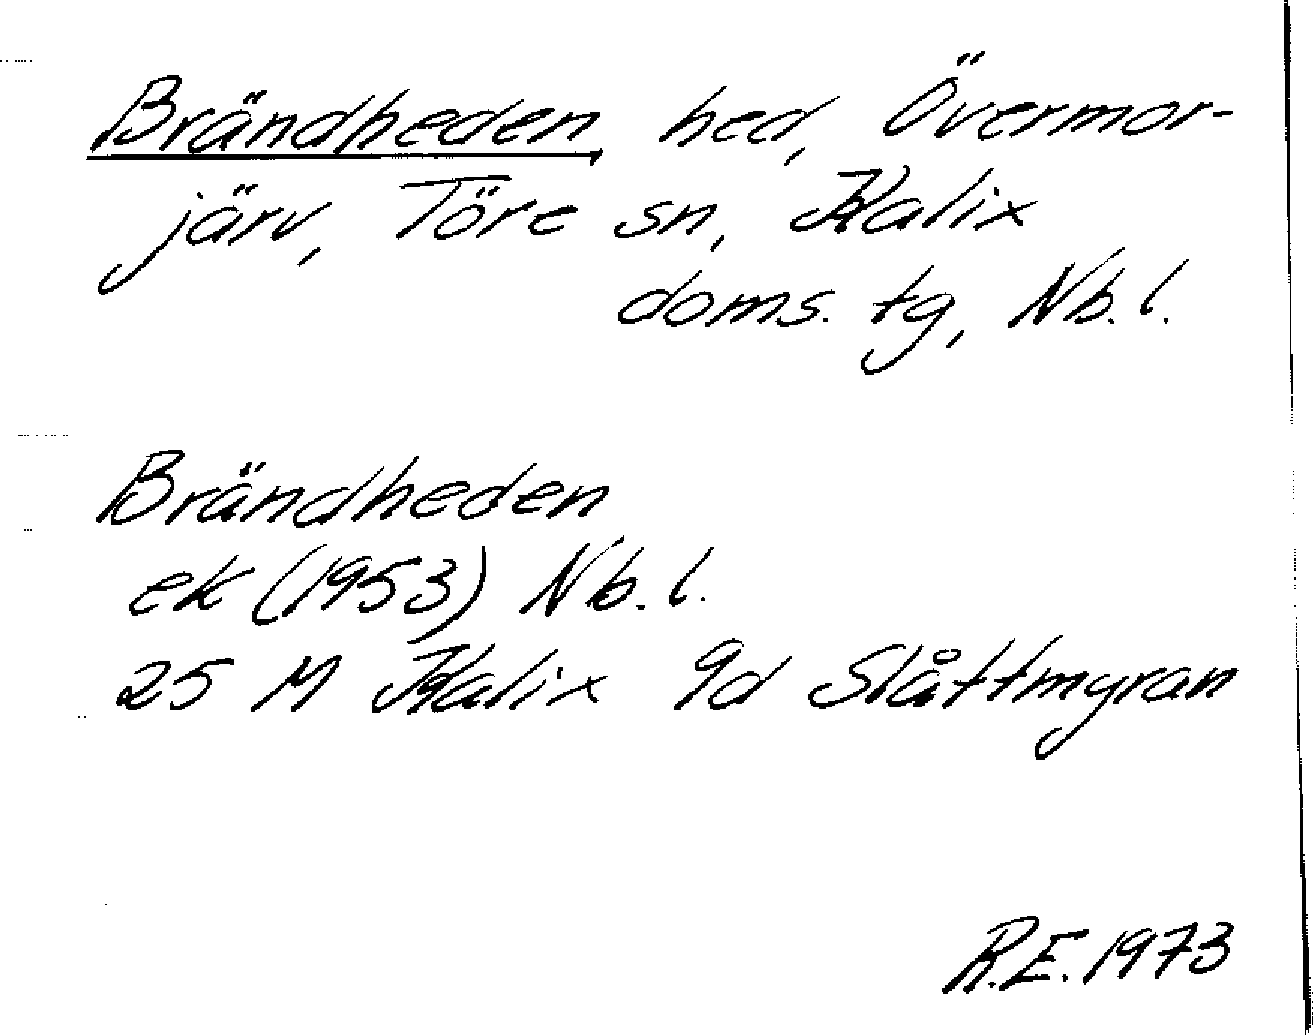 Brändheden, hed, Övermor-
järv, Töre sn, Kalix
doms. tg, Nb. l.
Brändheden
ek (1953) Nb. l.
25 M Kalix 9d Slåttmyran
R.E. 1973